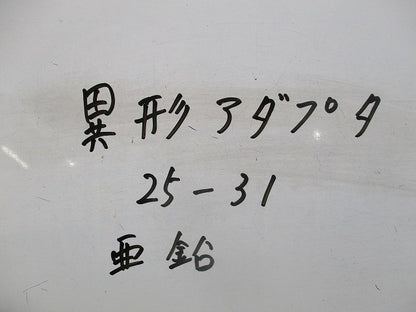 異形アダプタ
25-31
亜鉛